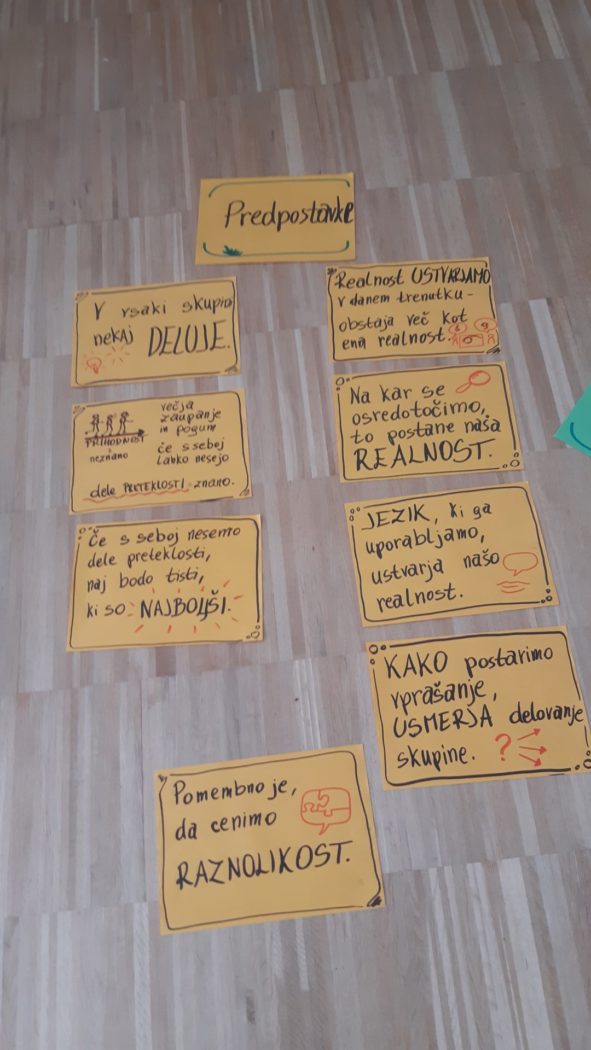 Predpostavke
V vsaki skupini
nekaj DELUJE.
večja
zaupanje
in pogum
PRIHODNOST
neznano
če s seboj
lahko nesejo
dele PRETEKLOSTI - znano.
Če s seboj nesemo
dele preteklosti,
naj bodo tisti,
ki so NAJBOLJŠI.
Realnost USTVARJAMO
v danem trenutku -
obstaja več kot
ena realnost.
Na kar se
osredotočimo,
to postane naša
REALNOST.
JEZIK, ki ga
uporabljamo,
ustvarja našo
realnost.
KAKO postavimo
vprašanje,
USMERJA delovanje
skupine. ?
Pomembno je,
da cenimo
RAZNOLIKOST.